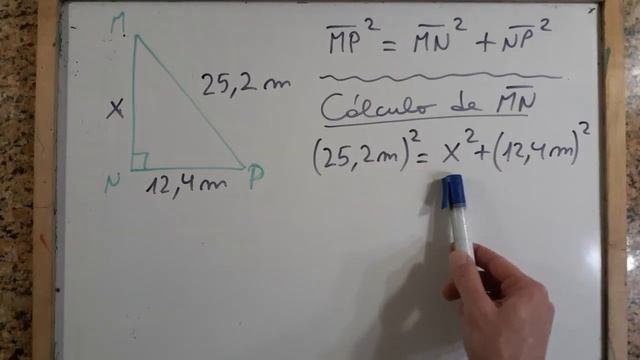 M
X
25,2 m
N
12,4 m
P
MP² = MN² + NP²
Cálculo de MN
(25,2 m)² = X² + (12,4 m)²